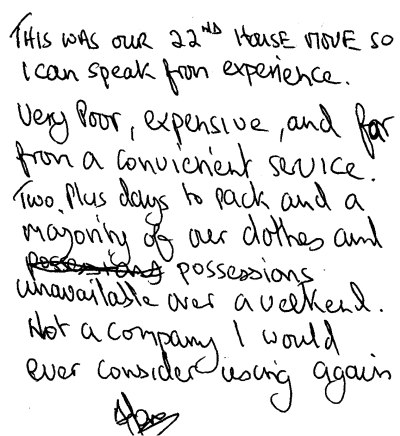 THIS WAS OUR 22ND HOUSE MOVE SO
I can speak from experience.
Very Poor, expensive, and far
from a convienient service.
Two Plus days to pack and a
majority of our clothes and
possessions possessions
unavailable over a weekend.
Not a company I would
ever consider using again